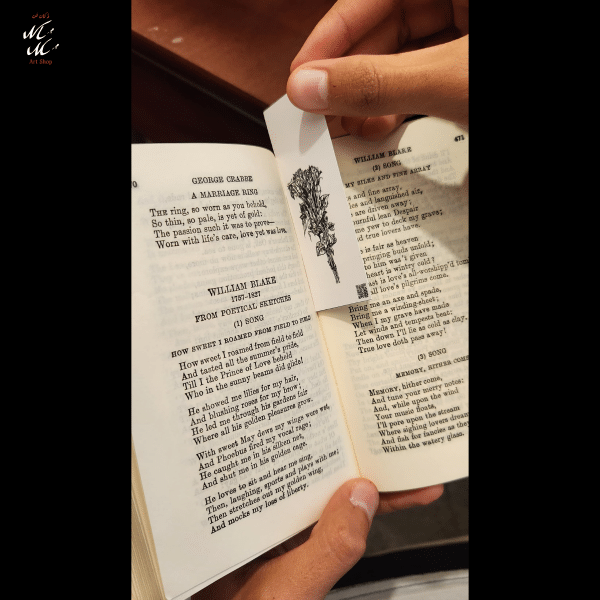 Art Shop
70
GEORGE CRABBE
A MARRIAGE RING
THE ring, so worn as you behold,
So thin, so pale, is yet of gold:
The passion such it was to prove—
Worn with life's care, love yet was love.
WILLIAM BLAKE
1757–1827
FROM POETICAL SKETCHES
(1) SONG
HOW SWEET I ROAMED FROM FIELD TO FIELD
How sweet I roamed from field to field
And tasted all the summer's pride,
Till I the Prince of Love beheld
Who in the sunny beams did glide!
He showed me lilies for my hair,
And blushing roses for my brow;
He led me through his gardens fair
Where all his golden pleasures grow.
With sweet May dews my wings were wet,
And Phoebus fired my vocal rage;
He caught me in his silken net,
And shut me in his golden cage.
He loves to sit and hear me sing,
Then, laughing, sports and plays with me;
Then stretches out my golden wing,
And mocks my loss of liberty.
471
WILLIAM BLAKE
(2) SONG
MY SILKS AND FINE ARRAY
and fine array,
and languished air,
are driven away;
lean Despair
me yew to deck my grave;
true lovers have.
is fair as heaven
springing buds unfold;
to him was 't given
heart is wintry cold?
ast is love's all-worshipp'd tomb
all love's pilgrims come.
Bring me an axe and spade,
Bring me a winding-sheet;
When I my grave have made
Let winds and tempests beat:
Then down I'll lie as cold as clay.
True love doth pass away!
(3) SONG
MEMORY, HITHER COME
MEMORY, hither come,
And tune your merry notes;
And, while upon the wind
Your music floats,
I'll pore upon the stream
Where sighing lovers dream
And fish for fancies as they
Within the watery glass.